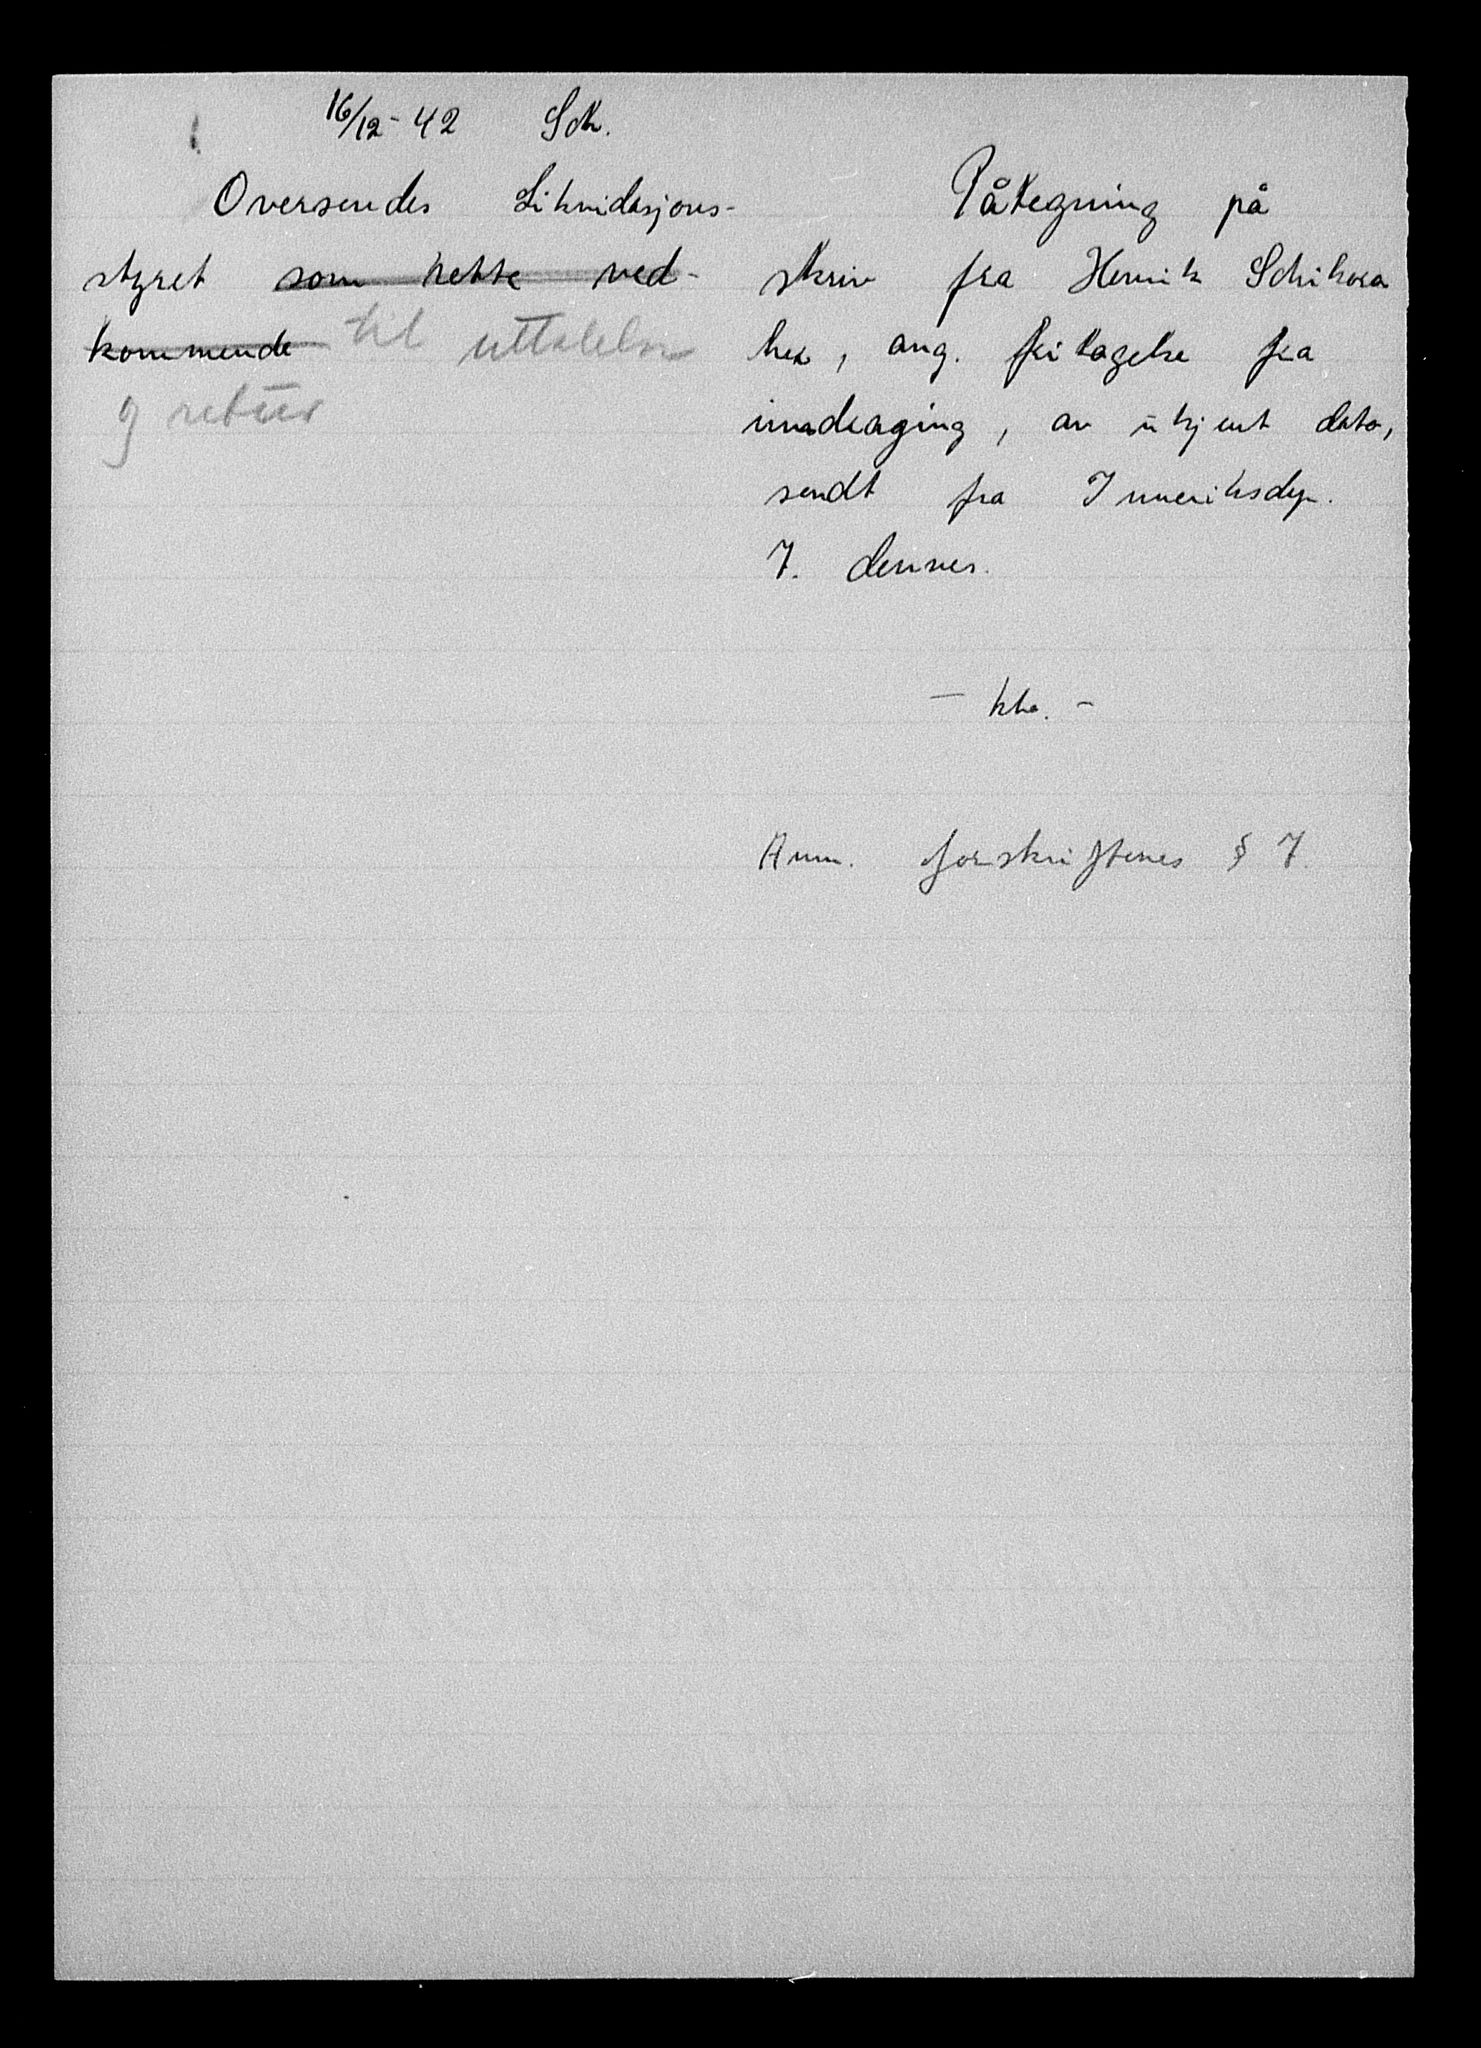 16/12-42 Sch.
Oversendes Likvidasjons-
styret som rette ved-
kommende til uttalelse
og retur
Påtegning på
skriv fra Henrik Schihora
her, ang. fritagelse fra
inndraging, av ukjent dato,
sendt fra Innenriksdep.
7. dennes.
Anm. forskriftenes § 7.